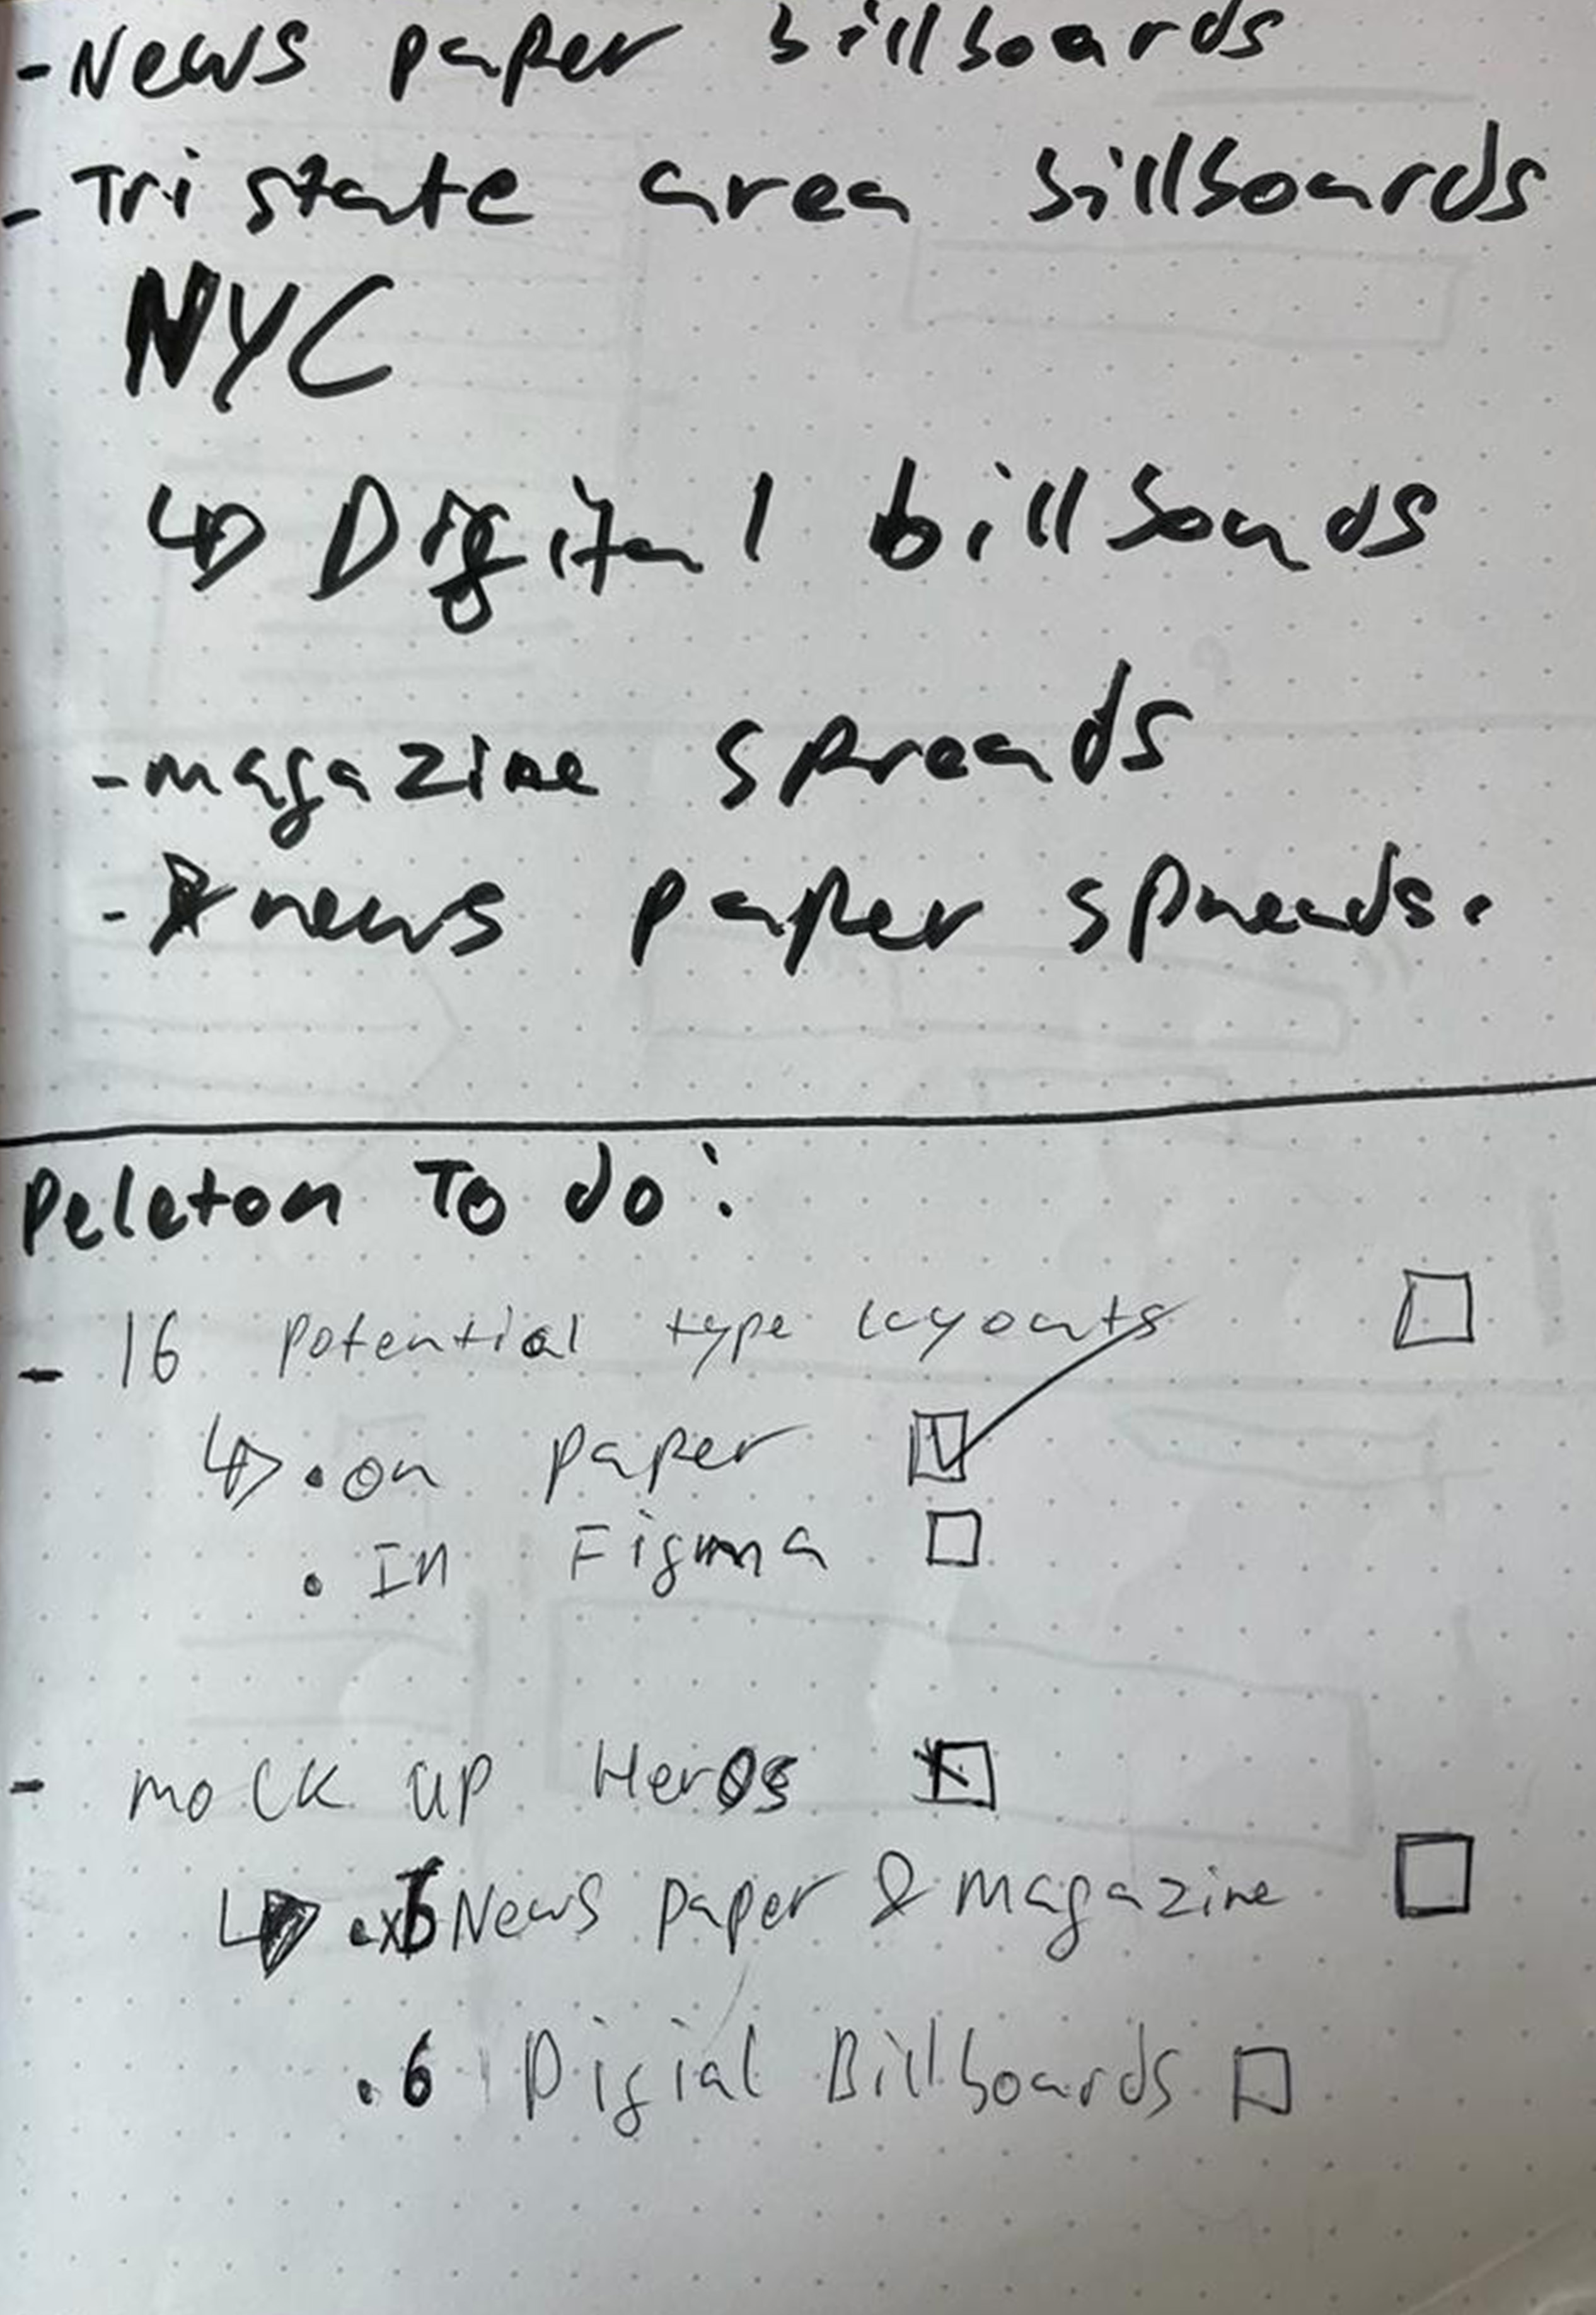 - News paper billboards
- Tri state area billboards
NYC
↳ Digital billboads
- magazine spreads
- news paper spreads.
Peleton To do:
- 16 potential type layouts
↳ • on paper
• In Figma
- mock up Heros
↳ News paper & magazine
• 6 Digial Billboards